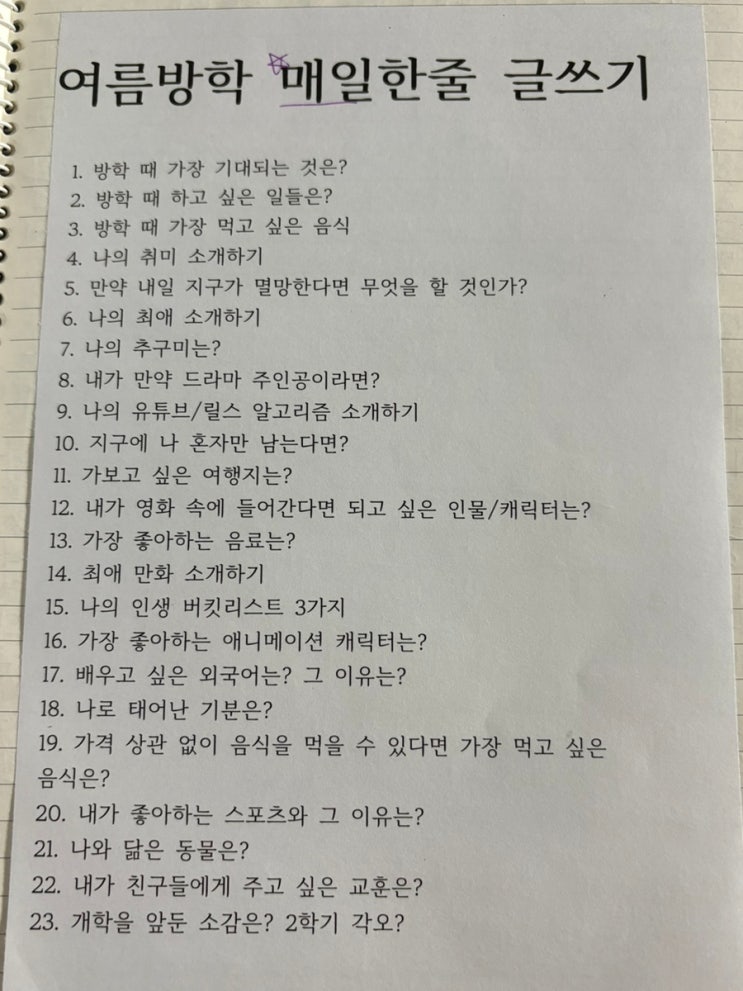 여름방학 매일한줄 글쓰기
1. 방학 때 가장 기대되는 것은?
2. 방학 때 하고 싶은 일들은?
3. 방학 때 가장 먹고 싶은 음식
4. 나의 취미 소개하기
5. 만약 내일 지구가 멸망한다면 무엇을 할 것인가?
6. 나의 최애 소개하기
7. 나의 추구미는?
8. 내가 만약 드라마 주인공이라면?
9. 나의 유튜브/릴스 알고리즘 소개하기
10. 지구에 나 혼자만 남는다면?
11. 가보고 싶은 여행지는?
12. 내가 영화 속에 들어간다면 되고 싶은 인물/캐릭터는?
13. 가장 좋아하는 음료는?
14. 최애 만화 소개하기
15. 나의 인생 버킷리스트 3가지
16. 가장 좋아하는 애니메이션 캐릭터는?
17. 배우고 싶은 외국어는? 그 이유는?
18. 나로 태어난 기분은?
19. 가격 상관 없이 음식을 먹을 수 있다면 가장 먹고 싶은
음식은?
20. 내가 좋아하는 스포츠와 그 이유는?
21. 나와 닮은 동물은?
22. 내가 친구들에게 주고 싶은 교훈은?
23. 개학을 앞둔 소감은? 2학기 각오?